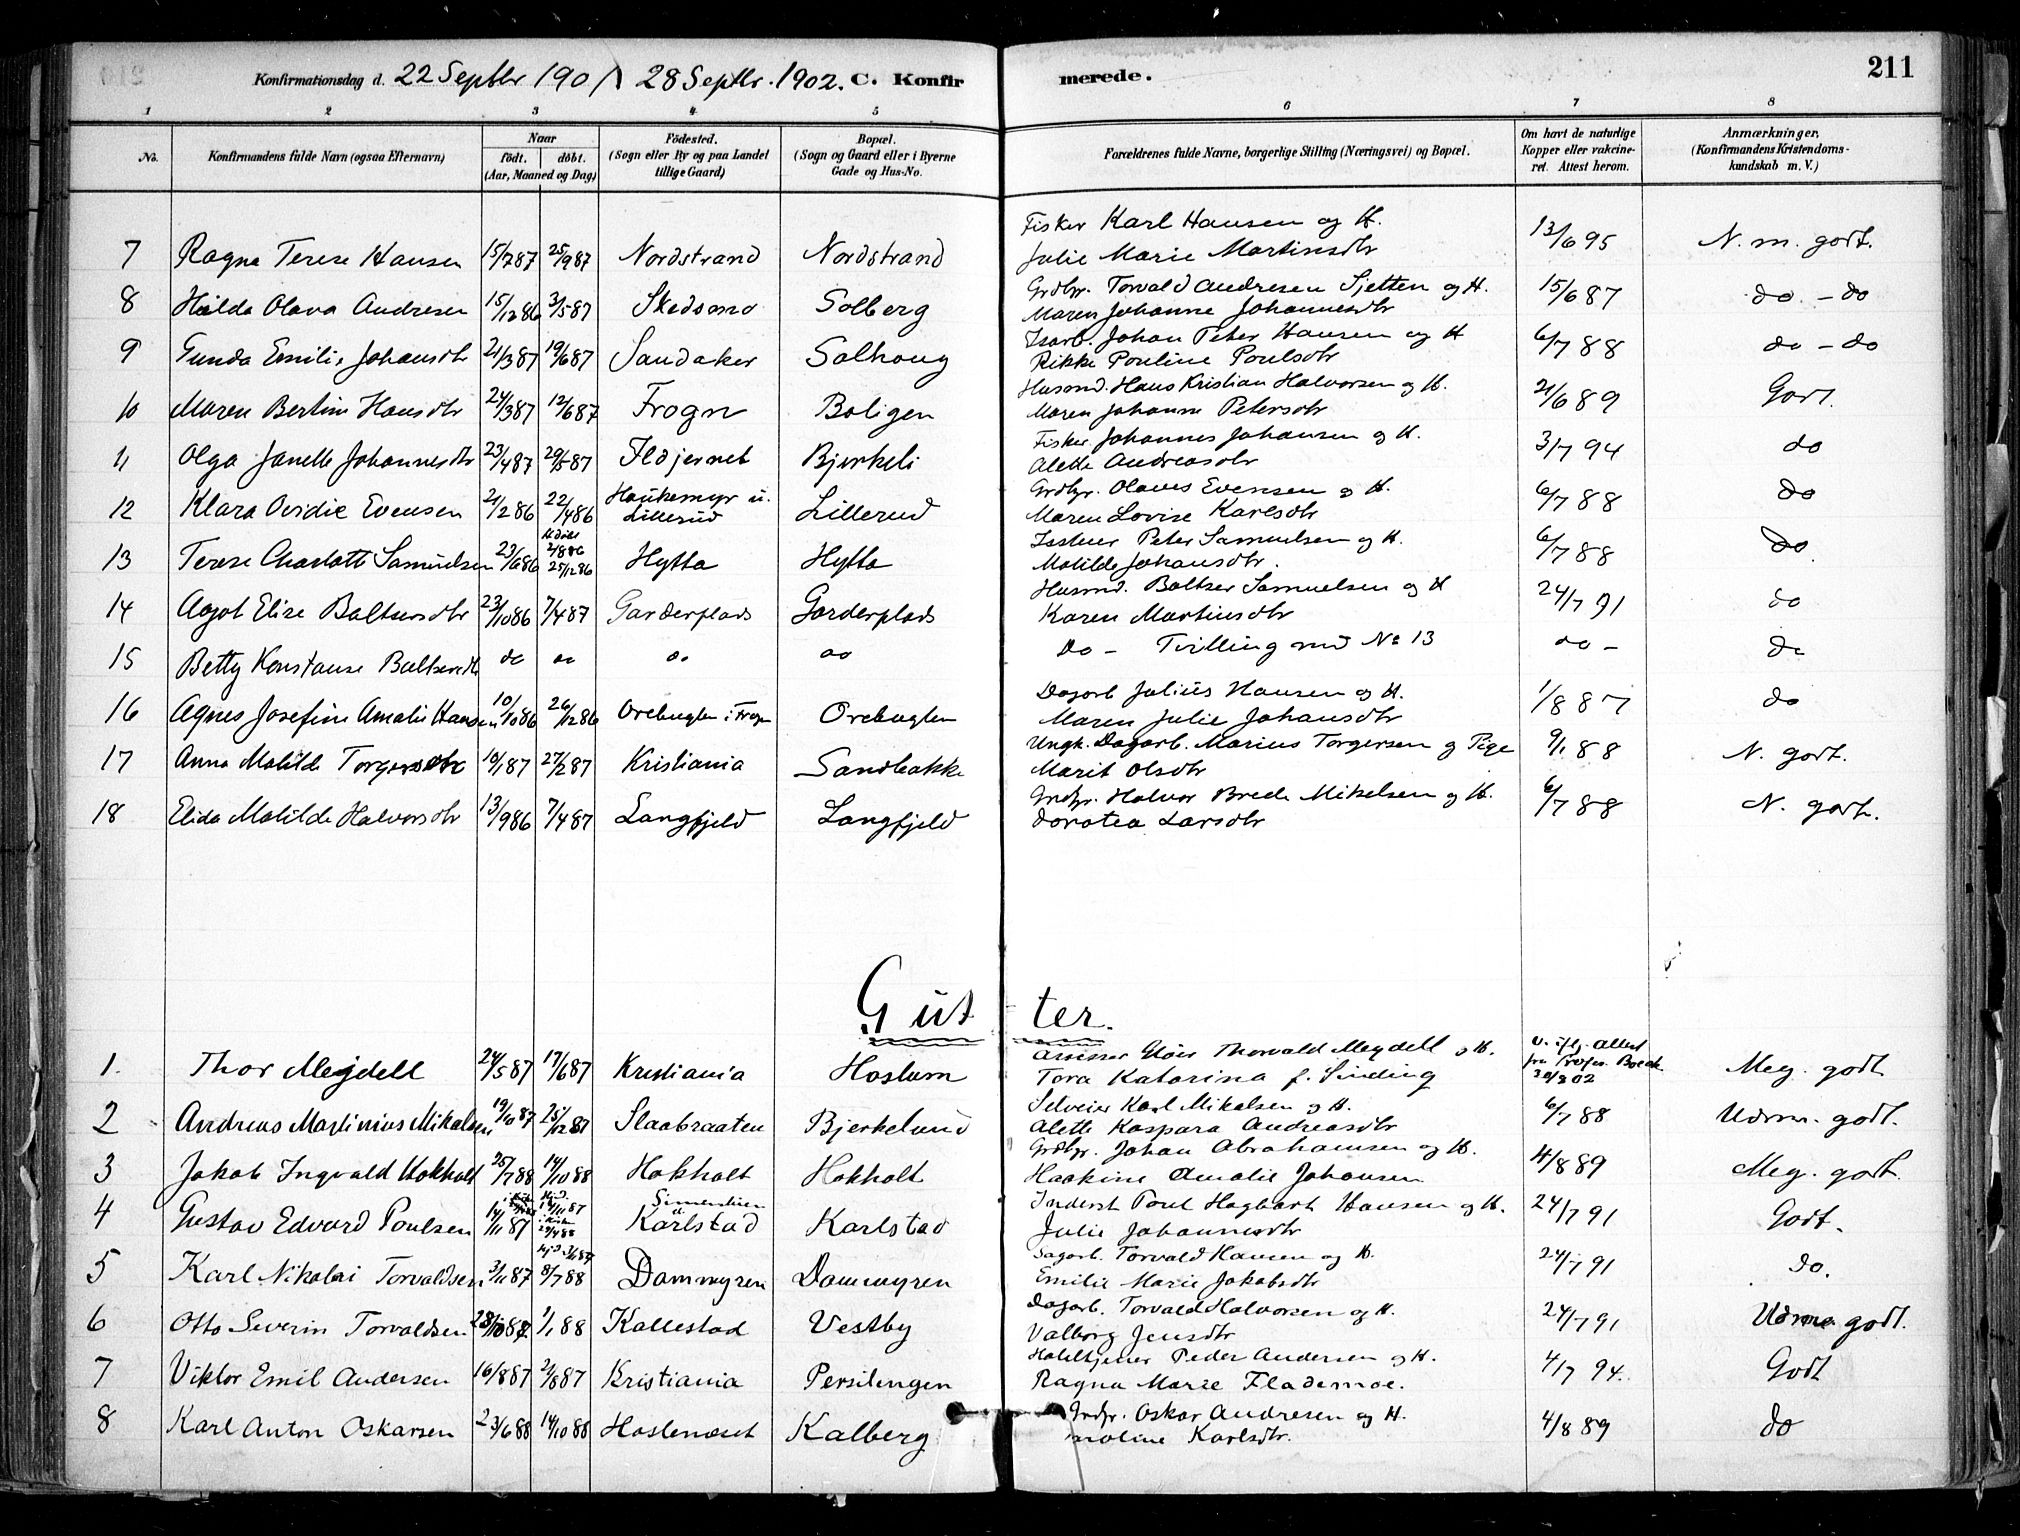 Konfirmationsdag d. 22 Septbr 1901 28 Septbr. 1902. C. Konfirmerede. 211
1 2 3 4 5 6 7 8
No. Konfirmandens fulde Navn (ogsaa Efternavn) Naar födt. döbt. (Aar, Maaned og Dag) Födested. (Sogn eller By og paa Landet tillige Gaard) Bopæl. (Sogn og Gaard eller i Byerne Gade og Hus-No. Forældrenes fulde Navne, borgerlige Stilling (Næringsvei) og Bopæl. Om havt de naturlige Kopper eller vakcineret. Attest herom. Anmærkninger. (Konfirmandens Kristendomskundskab m. V.)
7 Ragna Terese Hansen 15/7 87 25/9 87 Nordstrand Nordstrand Fisker Karl Hansen og H. Julie Marie Martinsdtr 13/6 95 N. m. godt.
8 Hilda Olava Andresen 15/12 86 3/5 87 Skedsmo Solberg Grdbr. Torvald Andresen Sjetten og H. Maren Johanne Johannesdtr 15/6 87 do. - do
9 Gunda Emilie Johansdtr 21/3 87 19/6 87 Sandaker Solhoug Johan Peter Hansen og H Rikke Pouline Poulsdtr 6/7 88 do - do
10 Maren Bertine Hansdtr 24/3 87 12/6 87 Frogn Boligen Husmd. Hans Kristian Halvorsen og H. Maren Johanne Petersdtr 21/6 89 Godt.
11 Olga Janette Johannesdtr 23/4 87 29/5 87 Ildjernet Bjerkeli Fisker Johannes Johansen og H. Alette Andreasdtr 3/7 94 do
12 Klara Ovidie Evensen 21/2 86 22/4 86 Haukemyr u. Lillerud Lillerud Grdbr. Olaves Evensen og H. Maren Lovise Karlsdtr 6/7 88 do
13 Terese Charlotte Samuelsen 23/6 86 2/8 86 25/12 86 Hytta Hytta Peter Samuelsen og H. Matilde Johansdtr. 6/7 88 do
14 Aagot Elise Baltsersdtr 23/10 86 7/4 87 Garderplads Garderplads Husmd. Baltser Samuelsen og H Karen Martinsdtr 24/7 91 do
15 Betty Konstanse Baltsersdtr do do do do Do - Tvilling med No 13 do - do
16 Agnes Josefine Amalie Hansen 10/10 86 26/12 86 Orebugten i Frogn Orebugten Dagarb Julius Hansen og H. Maren Julie Johansdtr 1/8 87 do
17 Anna Matilde Torgersdtr 19/1 87 27/2 87 Kristiania Sandbakke Ungk. Dagarb. Marius Torgersen og Pige Marit Olsdtr 9/1 88 N. godt.
18 Elida Matilde Halvorsdtr 13/9 86 7/4 87 Langfjeld Langfjeld Grdbr. Halvor Brede Mikelsen og H. Dorotea Larsdtr 6/7 88 N. godt.
Gutter.
1. Thor Mejdell 24/5 87 17/6 87 Kristiania Haslum Thorvald Mejdell og H. Tora Katarina f. Sinding V. iflg. Attest fra Profes. Boeck 20/8 02 Meg. godt
2 Andreas Martinius Mikalsen 19/10 87 25/12 87 Slaabraaten Bjerkelund Selveier Karl Mikalsen og H. Alette Kaspara Andreasdtr 6/7 88 Udm. godt.
3 Jakob Ingvald Hokholt 25/7 88 14/10 88 Hokholt Hokholt Grdbr. Johan Abrahamsen og H. Haakine Amalie Johansen 4/8 89 Meg. godt.
4 Gustav Edvard Poulsen 14/11 87 Karlstad Karlstad Inderst Poul Hagbart Hansen og H. Julie Johannesdtr 24/7 91 Godt.
5 Karl Nikolai Torvaldsen 3/11 87 8/7 88 Dammyren Dammyren Sagarb. Torvald Hansen og H. Emilie Marie Jakobsdtr 24/7 91 do.
6 Otto Severin Torvaldsen 28/10 87 1/1 88 Kallestad Vestby Dagarb. Torvald Halvorsen og H. Valborg Jensdtr 24/7 91 Udm. godt.
7 Viktor Emil Andersen 16/8 87 21/8 87 Kristiania Persilengen Peder Andersen og H. Ragna Marie Flademoe. 4/7 94. Godt
8 Karl Anton Oskarsen 23/6 88 14/10 88 Haslenæset Kalberg Grdbr. Oskar Andresen og H. Karlsdtr. 4/8 89 do